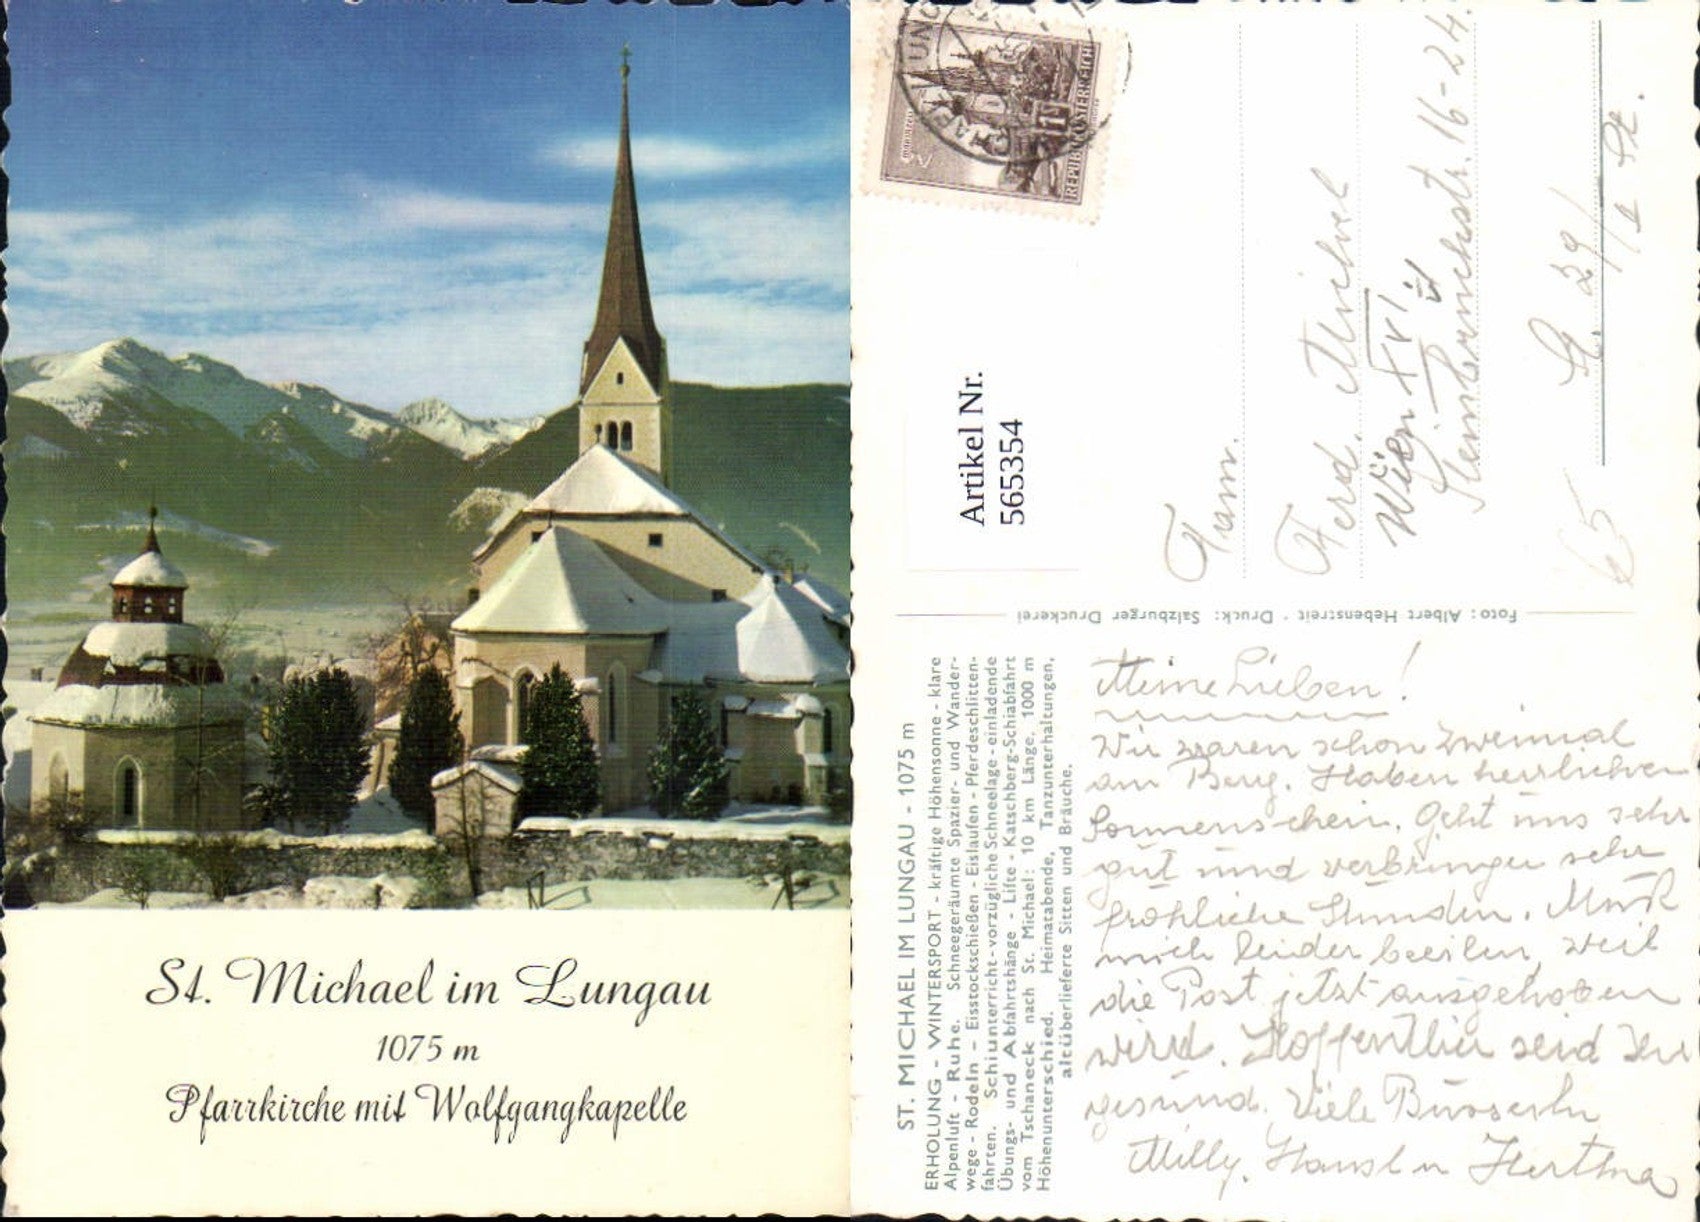 St. Michael im Lungau
1075 m
Pfarrkirche mit Wolfgangkapelle
REPUBLIK ÖSTERREICH
Artikel Nr.
565354
Fam.
Ferd.
Wien XVI
16-24.
65
Foto: Albert Hebenstreit · Druck: Salzburger Druckerei
ST. MICHAEL IM LUNGAU - 1075 m
ERHOLUNG - WINTERSPORT - kräftige Höhensonne - klare
Alpenluft - Ruhe. Schneegeräumte Spazier- und Wander-
wege - Rodeln - Eisstockschießen - Eislaufen - Pferdeschlitten-
fahrten. Schiunterricht - vorzügliche Schneelage - einladende
Übungs- und Abfahrtshänge - Lifte - Katschberg-Schiabfahrt
vom Tschaneck nach St. Michael: 10 km Länge, 1000 m
Höhenunterschied. Heimatabende, Tanzunterhaltungen,
altüberlieferte Sitten und Bräuche.
Meine Lieben!
Wir waren schon zweimal
am Berg. Haben herrlichen
Sonnenschein. Geht uns sehr
gut und verbringen sehr
fröhliche Stunden. Muß
mich leider beeilen, weil
die Post jetzt ausgehoben
wird. Hoffentlich seid Ihr
gesund. Viele Busserln
Milly, Hansl u Hertha